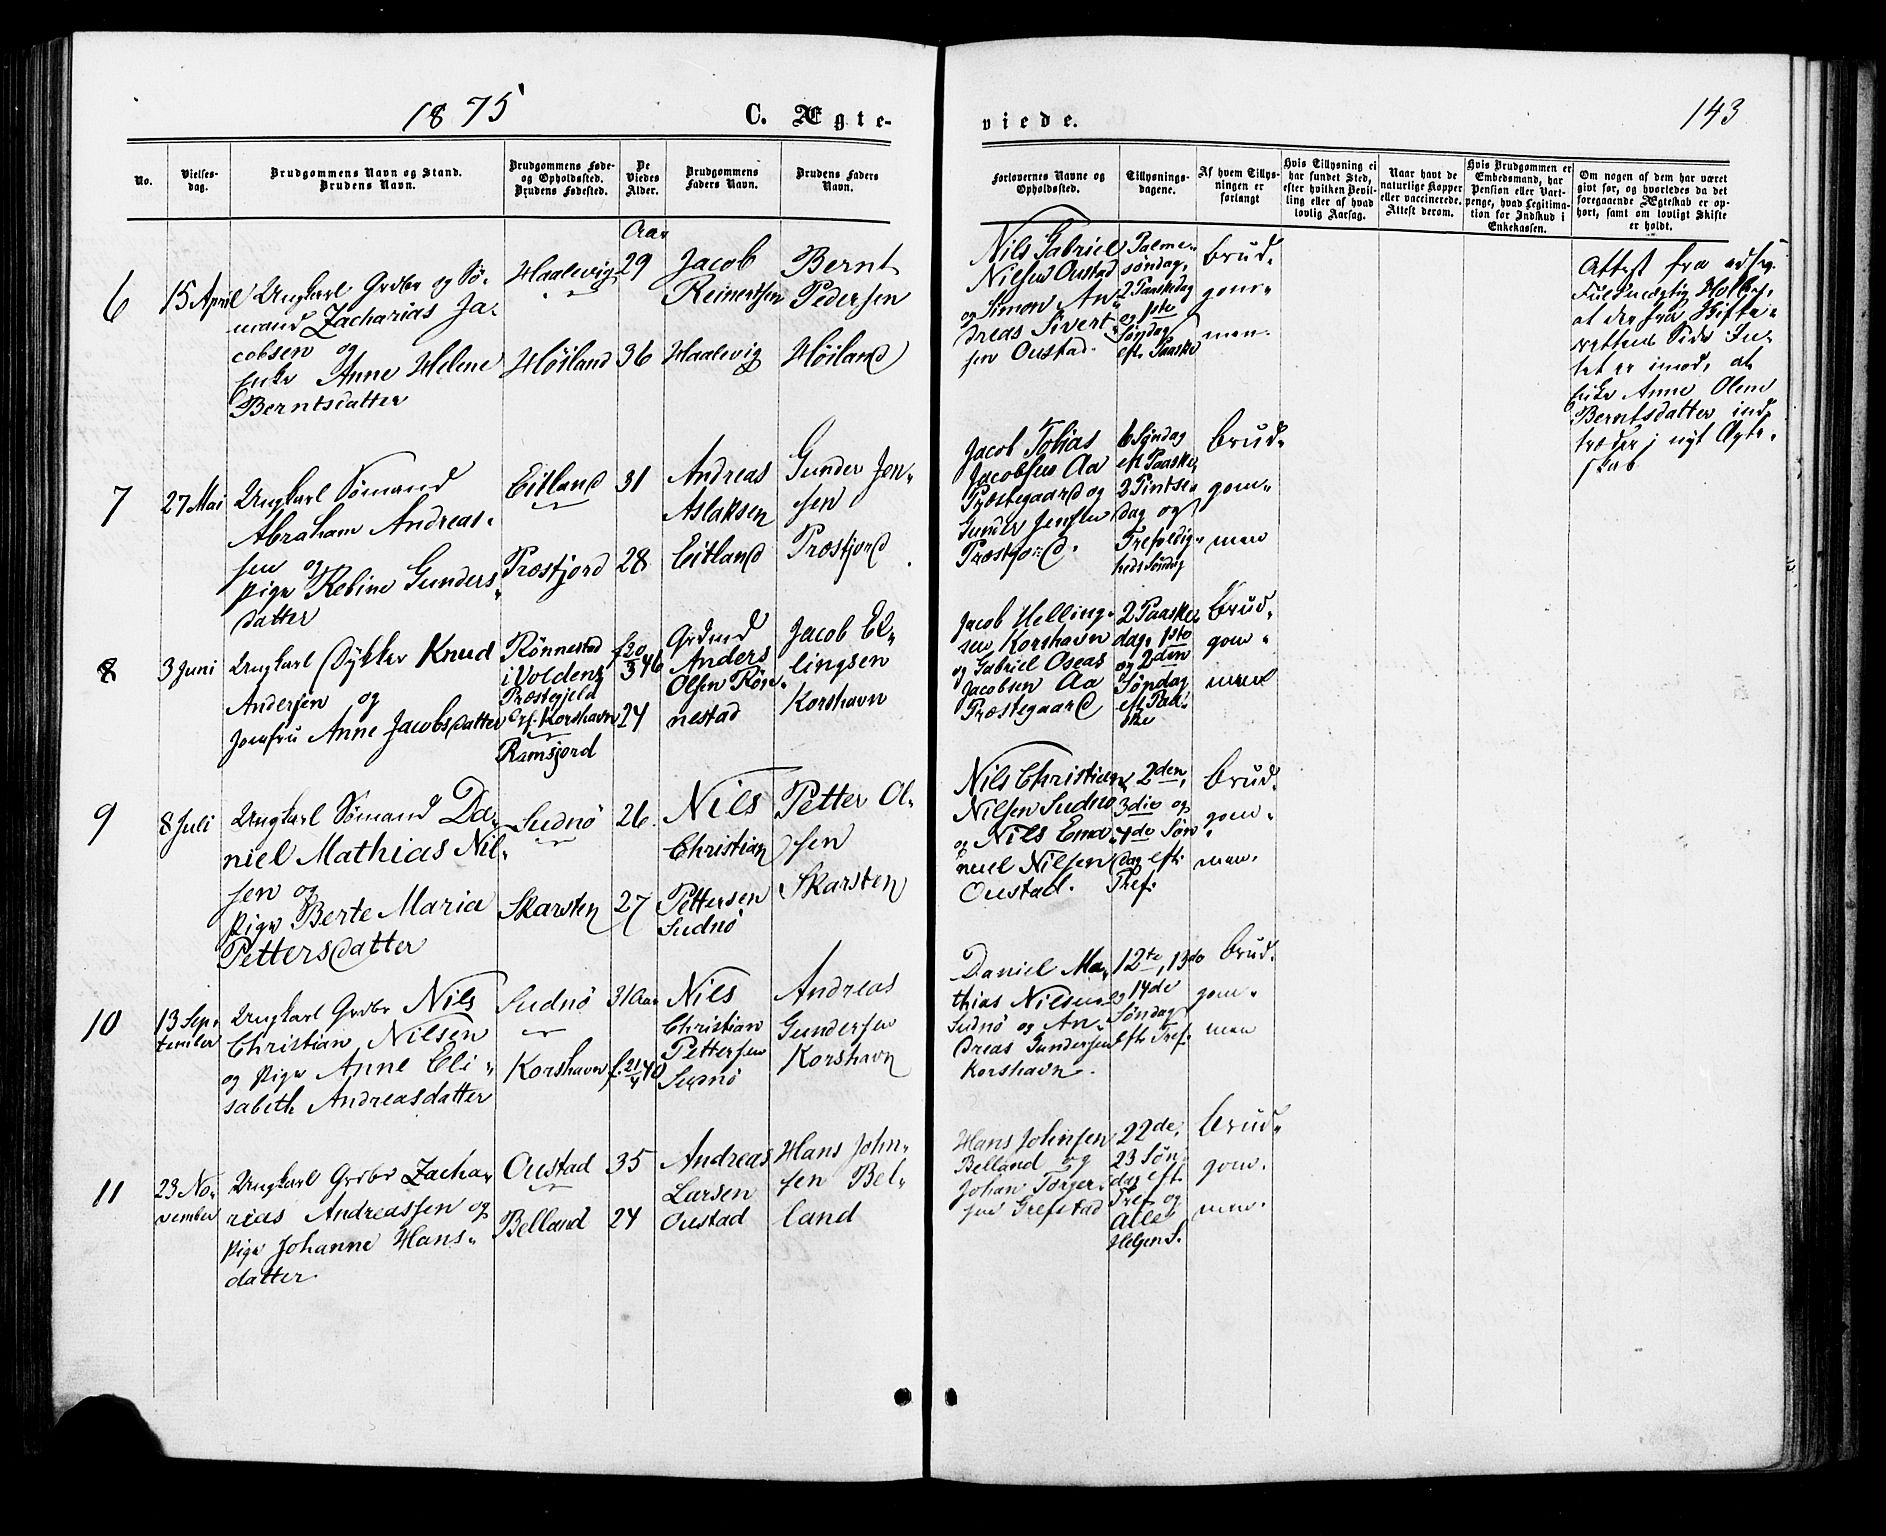 1875
C. Ægte-
viede.
143
No.
Vielses-
dag.
Brudgommens Navn og Stand.
Brudens Navn.
Brudgommens Føde-
og Opholdssted.
Brudens Fødested.
De
Viedes
Alder.
Brudgommens
Faders Navn.
Brudens Faders
Navn.
Forlovernes Navne og
Opholdssted.
Tillysnings-
dagene.
Af hvem Tillys-
ningen er
forlangt
Hvis Tillysning ei
har fundet Sted,
efter hvilken Bevil-
ling eller af hvad
lovlig Aarsag.
Naar havt de
naturlige Kopper
eller vaccinerede.
Attest derom.
Hvis Brudgommen er
Embedsmand, har
Pension eller Vart-
penge, hvad Legitima-
tion for Indskud i
Enkekassen.
Om nogen af dem har været
gift før, og hvorledes da det
foregaaende Ægteskab er op-
hørt, samt om lovligt Skifte
er holdt.
6
15 April
Ungkarl Grdbr og Sø-
mand Zacharias Ja-
cobsen og
Enke Anne Helene
Berntsdatter
Haalevig
Høiland
Aar
29
36
Jacob
Reinertsen
Haalevig
Bernt
Pedersen
Høiland
Nils Gabriel
Nilsen Oustad
og Simon An-
dreas Sivert-
sen Oustad.
Palme-
søndag,
2 Paaskedag
og 1ste
Søndag
eft. Paaske
Brud-
gom-
men.
Attest fra
at der fra Skifte-
rettens Side In-
tet er imod, at
Enke Anne Olene
Berntsdatter ind-
træder i nyt Ægte-
skab
7
27 Mai
Ungkarl Sømand
Abraham Andreas-
sen og
Pige Rebine Gunders-
datter
Eitland
Præstjord
31
28
Andreas
Aslaksen
Eitland
Gunder Jen-
sen
Præstjord
Jacob Tobias
Jacobsen Aa
Præstegaard og
Gunder Jensen
Præstjord.
6 Søndag
eft Paaske,
2 Pintse-
dag og
Trefoldig-
heds Søndag
Brud-
gom-
men
8
3 Juni
Ungkarl Dykker Knud
Andersen og
Jomfru Anne Jacobsdatter
Rønnestad
i Voldens
Præstegjeld
Opf. Korshavn
Ramsjord
f. 20/3 46
24
Grdmd
Anders
Olsen Røn-
nestad
Jacob El-
lingsen
Korshavn
Jacob Helling-
sen Korshavn
og Gabriel Oseas
Jacobsen Aa
Præstegaard
2 Paaske
dag, 1ste
og 2den
Søndag
eft Paa-
ske
Brud-
gom-
men
9
8 Juli
Ungkarl Sømand Da-
niel Mathias Nil-
sen og
Pige Berte Maria
Pettersdatter
Sudnø
Skarsten
26.
27
Nils
Christian
Pettersen
Sudnø
Petter Ol-
sen
Skarsten
Nils Christian
Nilsen Sudnø
og Nils Ema-
nuel Nilsen
Oustad.
2den,
3die og
4de Søn-
dag eft.
Tref.
Brud.
gom-
men.
10
13 Sep-
tember
Ungkarl Grdbr Nils
Christian Nilsen
og Pige Anne Eli-
sabeth Andreasdatter
Sudnø
Korshavn
31 Aar
f. 21/4 40
Nils
Christian
Pettersen
Sudnø
Andreas
Gundersen
Korshavn
Daniel Ma-
thias Nilsen
Sudnø og An-
dreas Gundersen
Korshavn.
12te, 13de
og 14de
Søndag
eft. Tref.
Brud.
gom-
men
11
23 No-
vember
Ungkarl Grdbr Zacha-
rias Andreassen og
Pige Johanne Hans-
datter.
Oustad
Belland
35
24
Andreas
Larsen
Oustad
Hans John-
sen Bel-
land
Hans Johnsen
Belland og
Johan Torger-
sen Grefstad
22de,
23 Søn-
dag eft.
Tref. og
Alle
Helgen S.
Brud-
gom-
men.